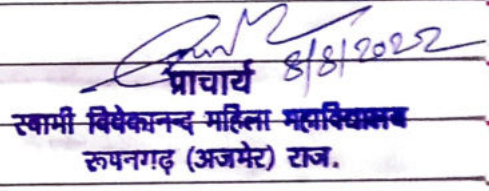 8/8/2022
प्राचार्य
स्वामी विवेकानन्द महिला महाविद्यालय
रूपनगढ़ (अजमेर) राज.